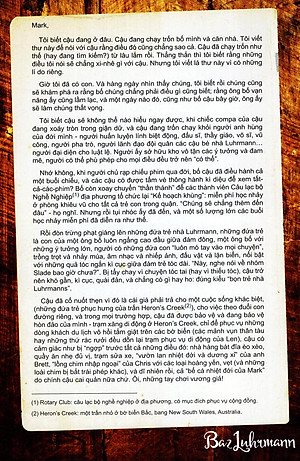 Mark,
Tôi biết cậu đang ở đâu. Cậu đang chạy trốn bố mình và căn nhà. Tôi viết
thư này để nói với cậu rằng điều đó cũng chẳng sao cả. Cậu đã chạy trốn như
thế (hay đang tìm kiếm?) từ lâu lắm rồi. Thẳng thắn thì tôi biết rằng những
điều tôi nói sẽ chẳng xi-nhê gì với cậu. Nhưng tôi viết lá thư này vì có những
lí do riêng.
Giờ tôi đã có con. Và hàng ngày nhìn thấy chúng, tôi biết rồi chúng cũng
sẽ khám phá ra rằng bố chúng chẳng phải điều gì cũng biết; rằng ông bố vạn
năng ấy cũng lầm lạc, và một ngày nào đó, cũng như bố cậu bây giờ, ông ấy
sẽ làm chúng thất vọng.
Tôi biết cậu sẽ không thể nào hiểu ngay được, khi chiếc compa của cậu
đang xoáy tròn trong giận dữ, và cậu đang trốn chạy khỏi người anh hùng
của đời mình - người huấn luyện lính biệt động, đấu sĩ, thầy giáo, võ sĩ, vũ
công, người pha trò, người lãnh đạo đội quân các cậu bé nhà Luhrmann...
người đại diện cho luật lệ. Người ấy sở hữu kho vô tận các ý tưởng và đam
mê, người có thể phù phép cho mọi điều đều trở nên "có thể".
Nhớ không, khi người chú rạp chiếu phim qua đời, bố cậu đã điều hành cả
một buổi chiếu, và các cậu có được tấm vé thông hành kì diệu để xem tất-
cả-các-phim? Bố còn xoay chuyển "thần thánh" để các thành viên Câu lạc bộ
Nghề Nghiệp(1) địa phương tổ chức lại "Kế hoạch khùng": miễn phí học nhảy
ở phòng khiêu vũ cho tất cả trẻ con trong quận. "Chúng sẽ chẳng thèm đến
đâu" - họ nghĩ. Nhưng rồi tụi nhóc ấy đã đến, và một số lượng lớn các buổi
học nhảy miễn phí đã diễn ra như thế.
Rồi đòn trừng phạt giáng lên những đứa trẻ nhà Luhrmann, những đứa trẻ
là con của một ông bố luôn ngẩng cao đầu giữa đám đông, một ông bố với
những ý tưởng lớn, người có những đứa con "luôn mó tay vào mọi chuyện",
trồng trọt và nhảy múa, âm nhạc và nhiếp ảnh, đấu vật và lặn biển, nổi bật
với những quả lóc ngắn kì cục giữa đám trẻ tóc dài. "Này, nghe nói về nhóm
Slade bao giờ chưa?". Bị tẩy chay vì chuyện tóc tai (hay vì thiếu tóc), cậu trở
nên khó gần, kì cục, quái đản, và chẳng có gì hay ho: đúng kiểu "bọn trẻ nhà
Luhrmanns".
Cậu đã cố nuốt thẹn vì đó là cái giá phải trả cho một cuộc sống khác biệt,
(những đứa trẻ phục hưng của trấn Heron's Creek(2)), cho việc theo đuổi con
đường riêng, và trong mọi trường hợp, cậu đã được bảo vệ và đang bảo vệ
hòn đảo của mình - trạm xăng di động ở Heron's Creek, chỉ để phục vụ những
dòng khách du lịch vồ hồi tấm giặt trên các bờ biển (các mảnh vụn thân tàu
hay những thứ rác rưởi đều dồn lại trạm phục vụ di động của Len), cậu có
cảm giác như bị "ngợp" trước tất cả những điều đó: nhà hàng bát đĩa éo xèo,
quầy ăn nhẹ đủ vị, trạm sửa xe, "vườn lan nhiệt đới và dương xỉ" của anh
Brett, "lồng chim mộng ngoại" của Chris với các loại hoàng yến, vẹt (và những
loài chim bị bắt trái phép khác), và dĩ nhiên rồi, cả "bể cá nhiệt đới của Mark"
do chính cậu cai quản nữa chứ. Ôi, những tay chơi vương giả!
(1) Rotary Club: câu lạc bộ nghề nghiệp ở địa phương, có mục đích phục vụ cộng đồng.
(2) Heron's Creek: một trấn nhỏ ở bờ biển Bắc, bang New South Wales, Australia.
Baz Luhrmann